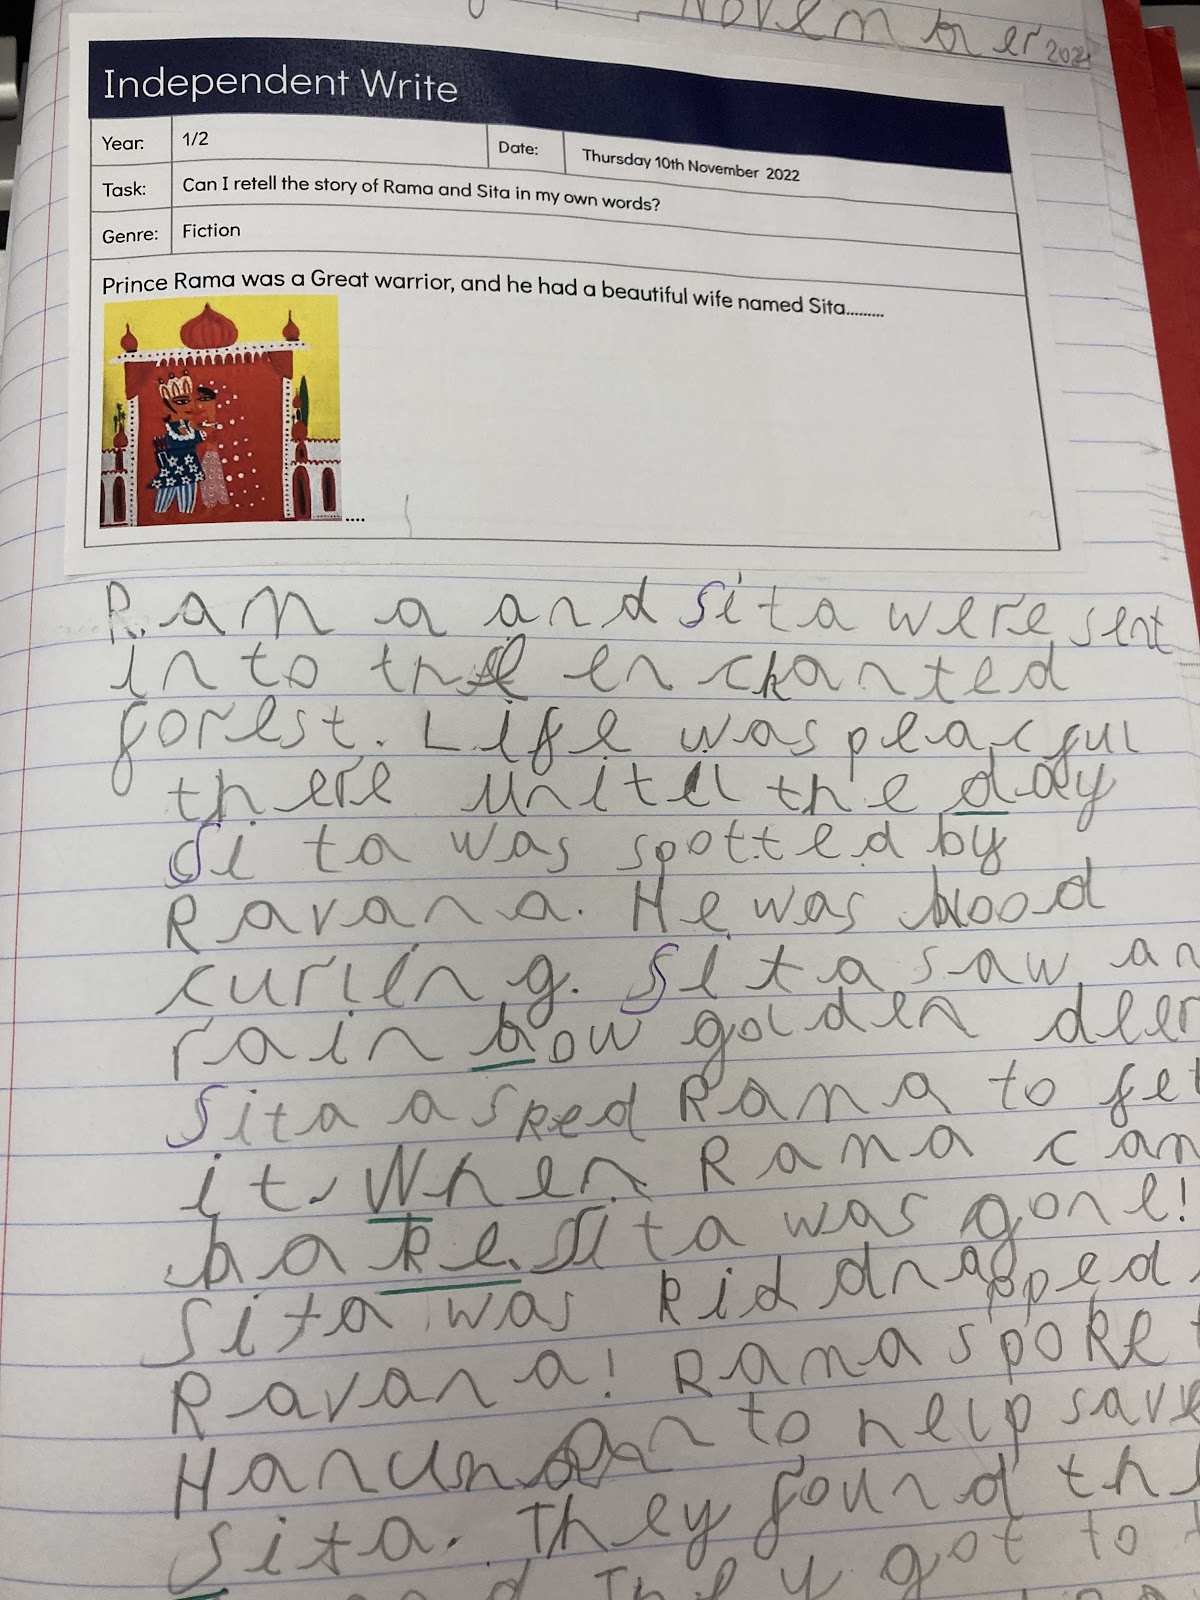 November 2022
Independent Write
Year: 1/2 Date: Thursday 10th November 2022
Task: Can I retell the story of Rama and Sita in my own words?
Genre: Fiction
Prince Rama was a Great warrior, and he had a beautiful wife named Sita.........
....
Rama and Sita were sent
into the enchanted
forest. Life was peacful
there until the day
Sita was spotted by
Ravana. He was blood
curling. Sita saw an
rain bow golden deer
Sita asked Rama to fet
it. When Rama cam
bake. Sita was gone!
Sita was kid dnapped
Ravana! Rama spoke t
Hanuman to help save
Sita. They found th
They got to